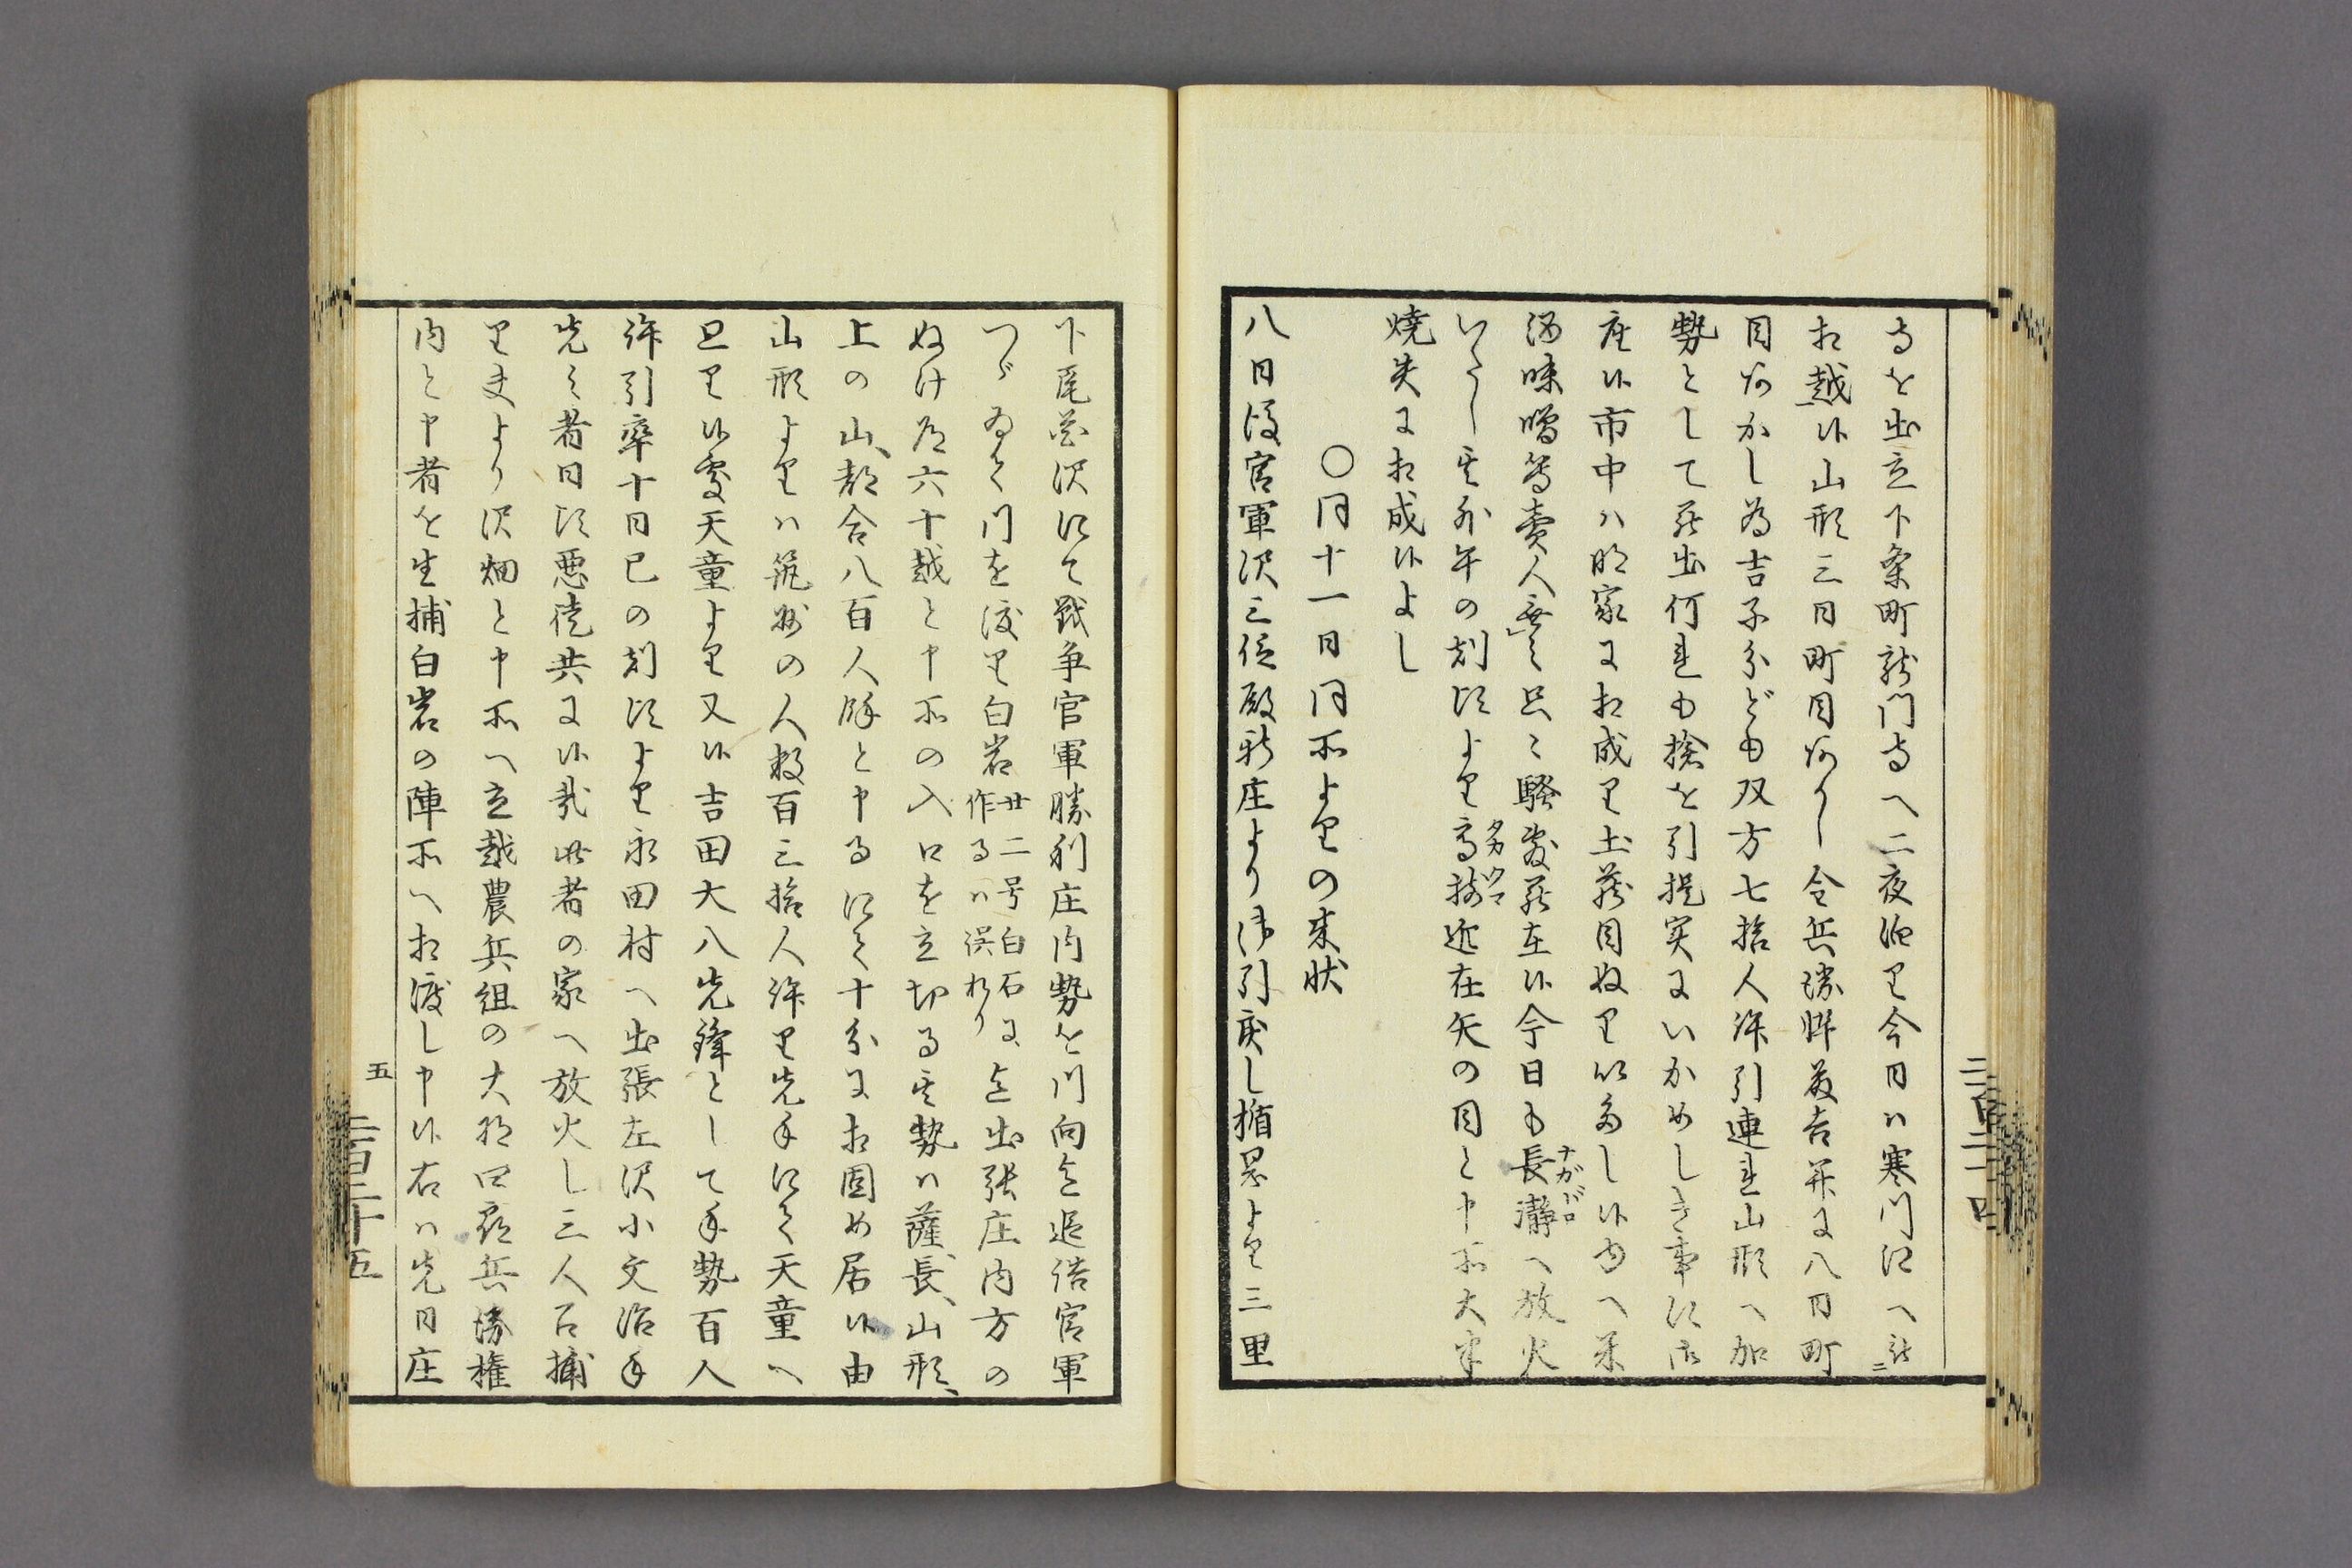 寺を出立下条町龍門寺へ二夜泊里今日ハ寒川江へ
相越候山形三日町目あかし令兵衛胖菊吉並に八日町
目あかし為吉子分ども双方七拾人許引連れ山形へ加
勢として罷出何れも捨を引提実にいかめしき事に御
座候市中ハ明家に相成里土蔵目ぬり候へ米
酒味噌等売人無之只々騒敷罷在候今日も長瀞へ放火
いたし其外午の刻頃より高擶近在矢の目と申所大半
焼失に相成候よし
〇同十一日同所よりの来状
八日後官軍沢三位殿新庄より御引戻し楯岡より三里
下尾花沢にて戦争官軍勝利庄内勢を川向迄追詰官軍
つゞゐて川を渡り白岩廿二号白石に作るハ誤れり迄出張庄内方の
ぬけ道六十越と申所の入口を立切る其勢ハ薩、長、山形、
上の山、都合八百人程と申る にて十分に相固め居候由
山形よりハ筑州の人数百三拾人許り先手にて天童へ
参り候処天童より又候吉田大八先鋒として手勢百人
許引率十日巳の刻頃より永田村へ出張左沢小文治手
先之者日頃悪徒共に候哉此者の家へ放火し三人召捕
り夫より沢畑と申所へ立越農兵組の大将口兵勝権
内と申者を生捕白岩の陣所へ相渡し申候右ハ先日庄
五
二百三十四
二百三十五